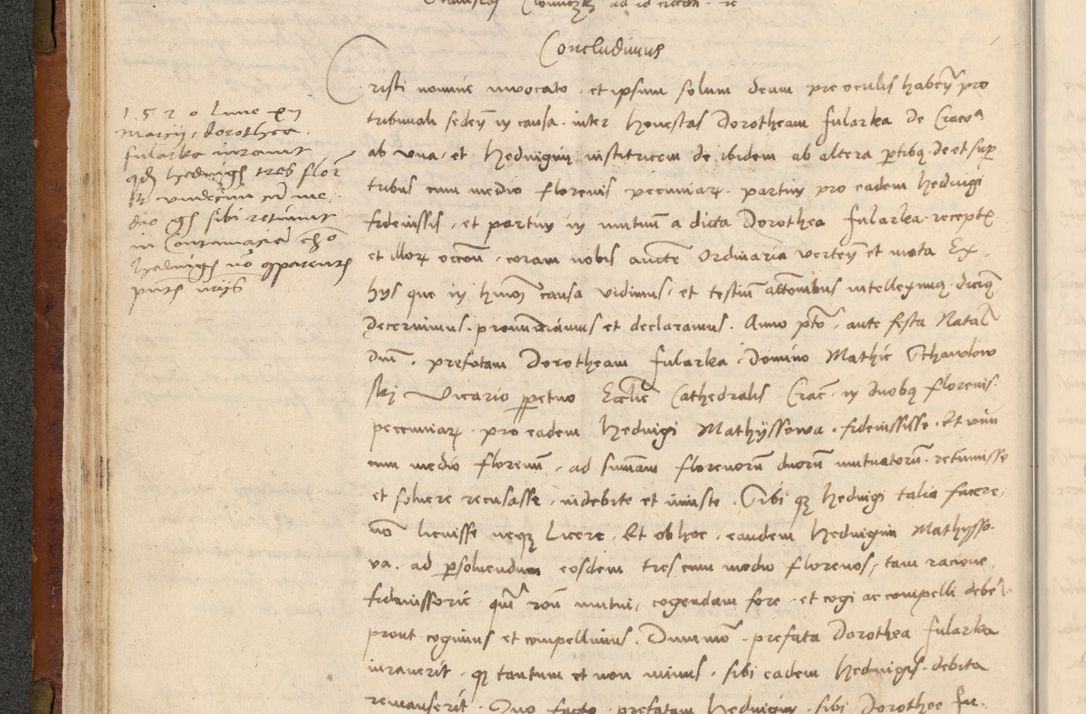 Concludimus
Cristi nomine invocato et ipsum solum deum pre oculis habens pro
tribunali seden in causa inter honestas Dorotheam fularka de Craco
ab una et Hedvigim institricem de ibidem ab altera ptibus de et sup
tribus cum medio florenis pecuniar partim pro eadem Hedvigi
fideiussis et partim in mutuum a dicta Dorothea fularka recept
et illor occone coram nobis aucte ordinaria verten et mota Ex
hys que in hmoi causa vidimus et testium attonibus intelleximus dicimus
decernimus pronunciamus et declaramus Anno pto ante festa Natal
Dni prefatam Dorotheam fularka Domino Mathie
ski Vicario ppetuo Ecclie Cathedralis Crac in duobus florenis
pecuniar pro eadem Hedvigi Mathyssowa fideiussisse Et unu
cum medio florenu ad sumam florenoru duoru mutuatoru retinuisse
et solvere recusasse indebite et iniuste Sibi que Hedvigi talia facere
no licuisse neque Licere Et ob hoc eandem Hedvigim Mathysso
va ad psolvendum eosdem tres cum medio florenos tam racione
fideiussorie qua ron mutui cogendam fore et cogi ac compelli debe
prout cogimus et compellimus Dummo prefata Dorothea fularka
iuraverit q tantum et non minus sibi eadem Hedvigis debita
remanserit Quo facto prefatam Hedvigim sibi Dorothee fu
1520 lune xii
Marcii dorothea
fularka iuravit
qd Hedvigis tres flor
undecim cu me
dio gs sibi retinuit
in Contumacia
Hedvigis no gparentis